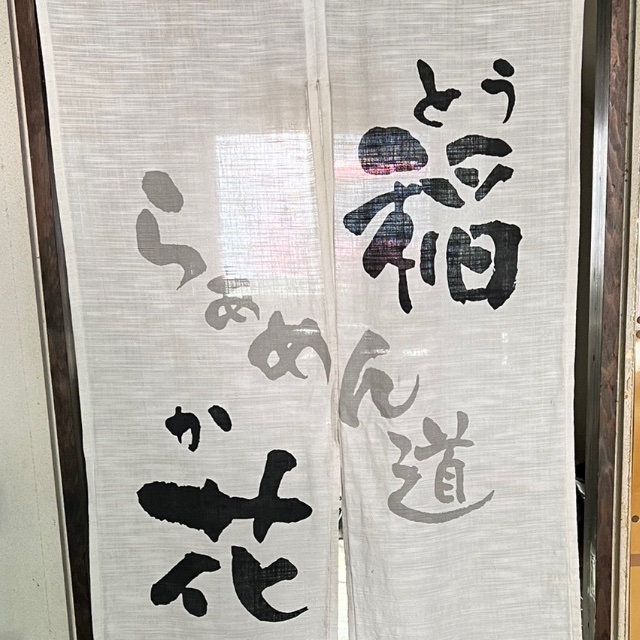 とう
稲
か
花
らぁめん道